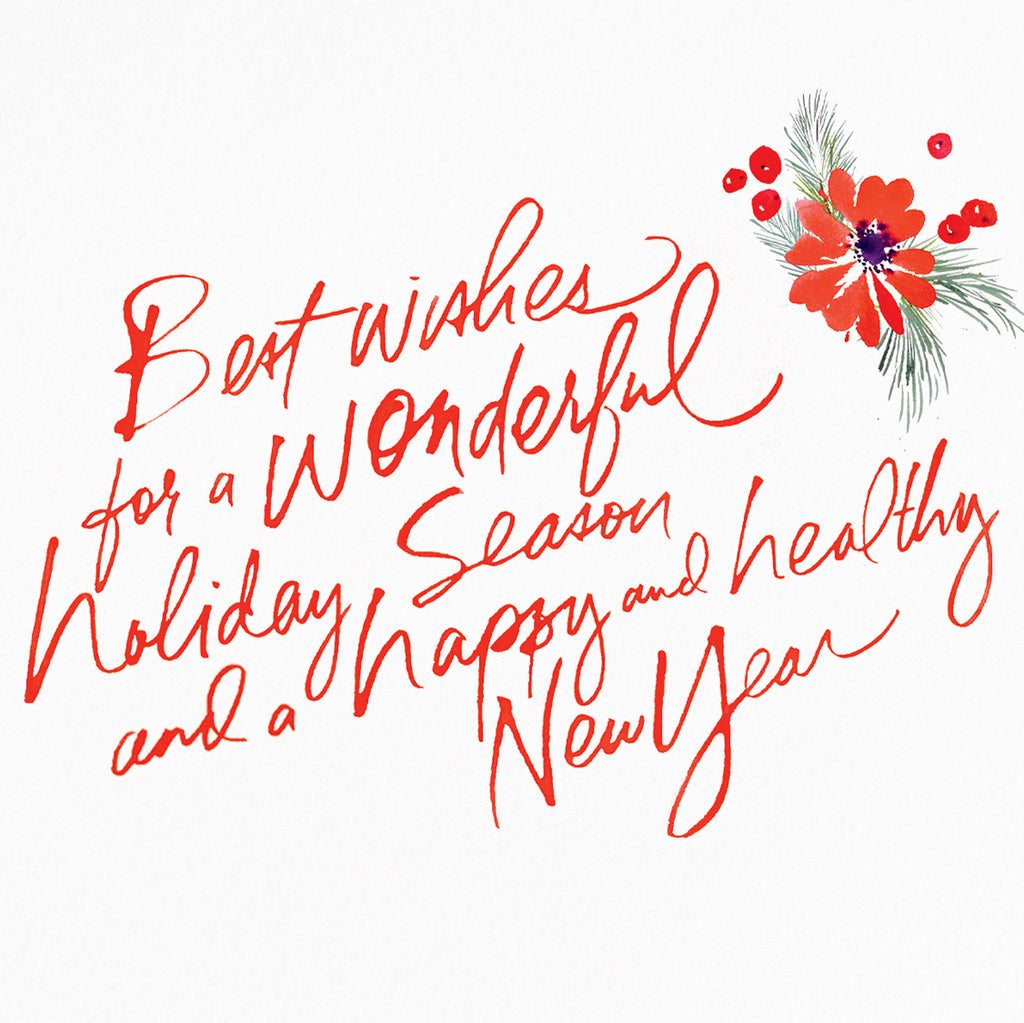 Best wishes
for a wonderful
holiday Season
and a happy and healthy
New Year